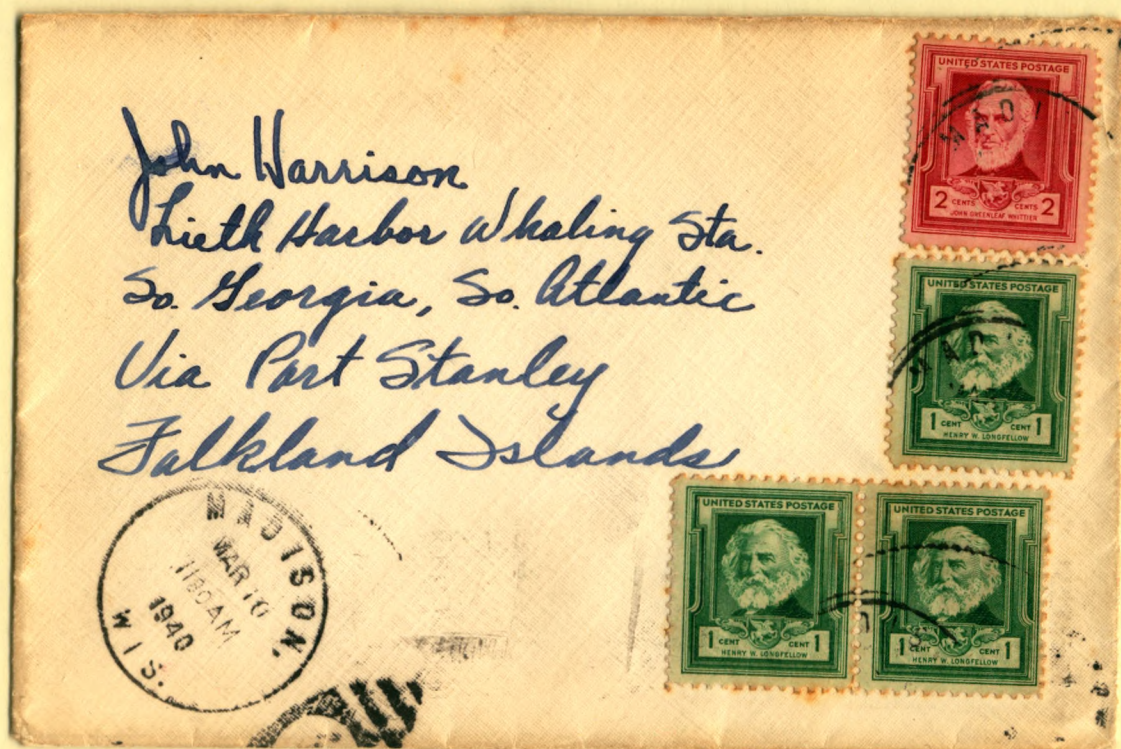 John Harrison
Lieth Harbor Whaling Sta.
So. Georgia, So. Atlantic
Via Port Stanley
Falkland Islands
UNITED STATES POSTAGE
2 CENTS CENTS 2
JOHN GREENLEAF WHITTIER
UNITED STATES POSTAGE
1 CENT CENT 1
HENRY W. LONGFELLOW
UNITED STATES POSTAGE
1 CENT CENT 1
HENRY W. LONGFELLOW
UNITED STATES POSTAGE
1 CENT CENT 1
HENRY W. LONGFELLOW
MADISON,
MAR 10
AM
1940
WIS.